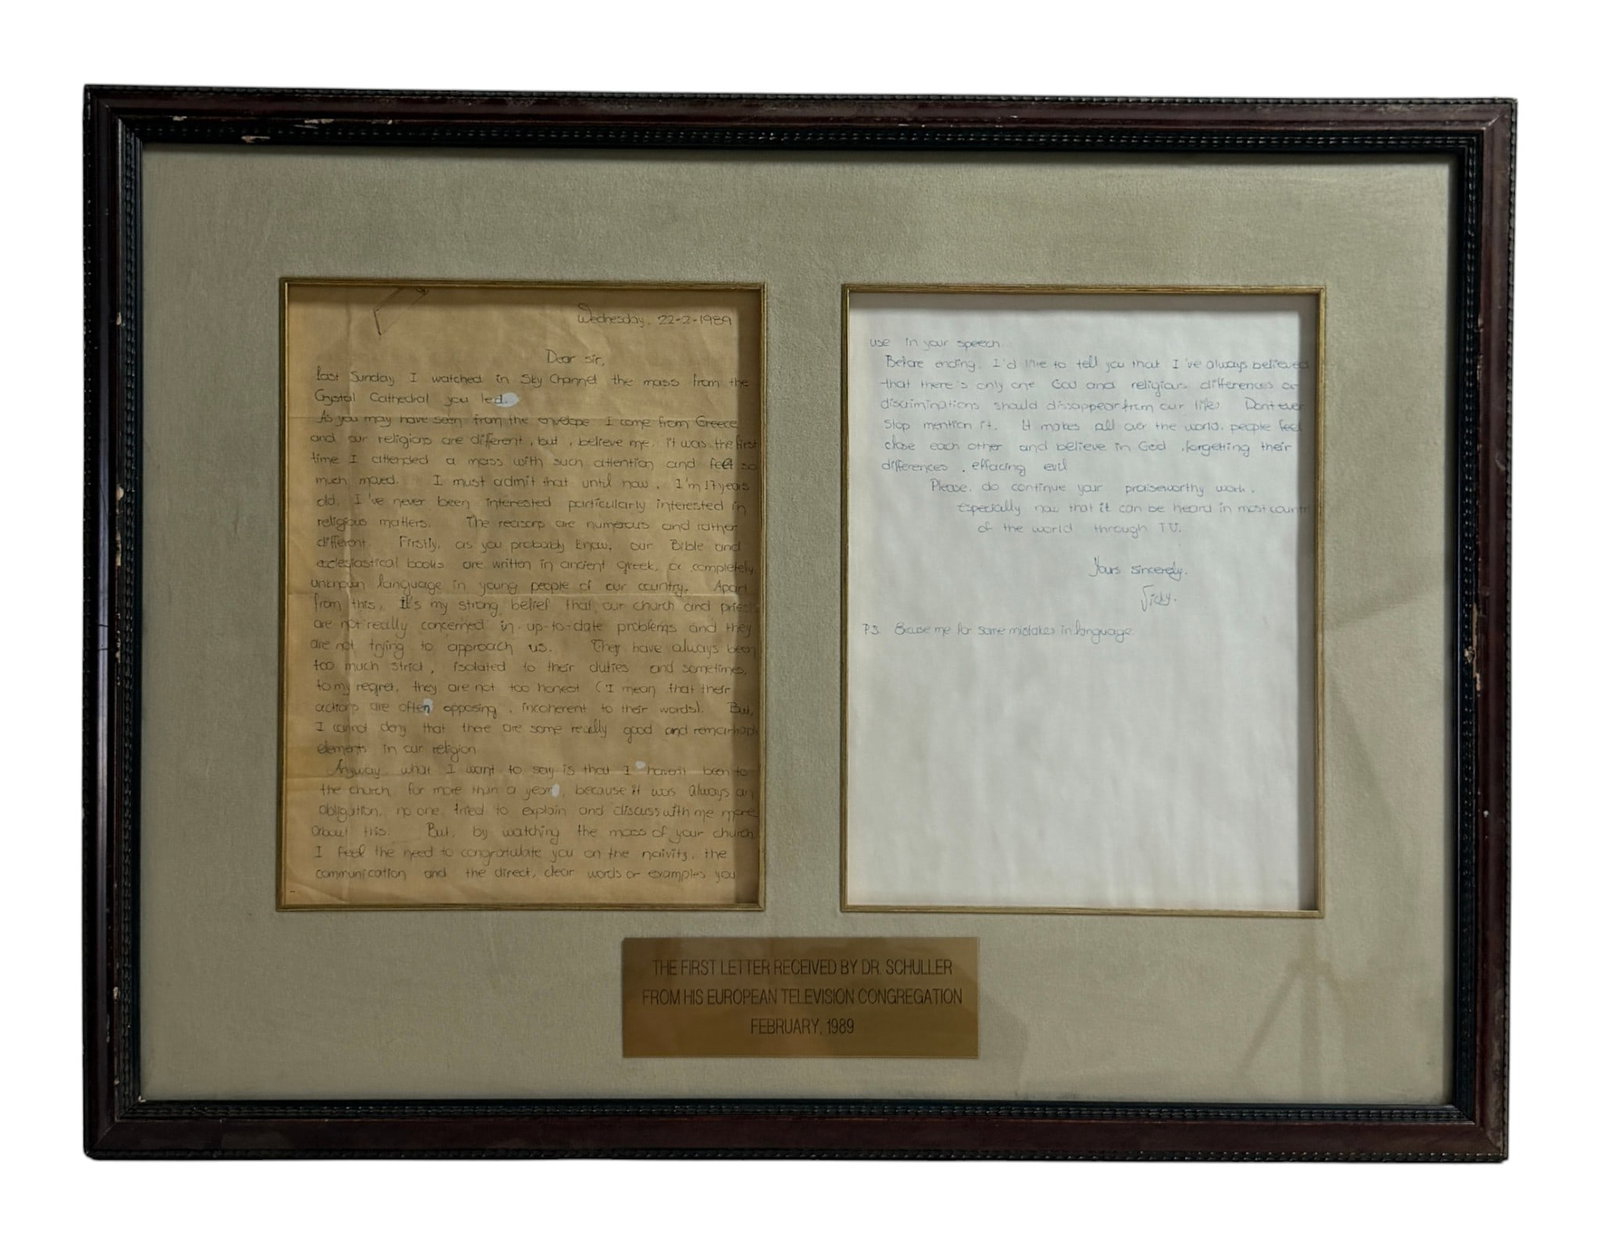 Wednesday, 22-2-1989
Dear sir,
Last Sunday I watched in Sky Channel the mass from the
Crystal Cathedral you led.
As you may have seen from the envelope I come from Greece
and our religions are different, but, believe me, it was the first
time I attended a mass with such attention and felt so
much moved. I must admit that until now, I'm 17 years
old, I've never been interested particularly interested in
religious matters. The reasons are numerous and rather
different. Firstly, as you probably know, our Bible and
ecclesiastical books are written in ancient Greek, a completely
unknown language in young people of our country. Apart
from this, It's my strong belief that our church and priests
are not really concerned in up-to-date problems and they
are not trying to approach us. They have always been
too much strict, isolated to their duties and sometimes,
to my regret, they are not too honest (I mean that their
actions are often opposing, incoherent to their words). But,
I cannot deny that there are some really good and
elements in our religion
Anyway, what I want to say is that I haven't been to
the church for more than a year, because it was always an
obligation, no one tried to explain and discuss with me more
about this. But, by watching the mass of your church
I feel the need to congratulate you on the naivity, the
communication and the direct, clear words or examples you
use in your speech.
Before ending, I'd like to tell you that I've always believed
that there's only one God and religious differences or
discriminations should dissappear from our life. Dont ever
stop mention it. It makes all over the world, people feel
close each other and believe in God, forgetting their
differences, effacing evil
Please, do continue your praiseworthy work,
especially now that it can be heard in most
of the world through T.V.
Yours sincerely,
Vicky.
P.S. Excuse me for some mistakes in language
THE FIRST LETTER RECEIVED BY DR. SCHULLER
FROM HIS EUROPEAN TELEVISION CONGREGATION
FEBRUARY, 1989